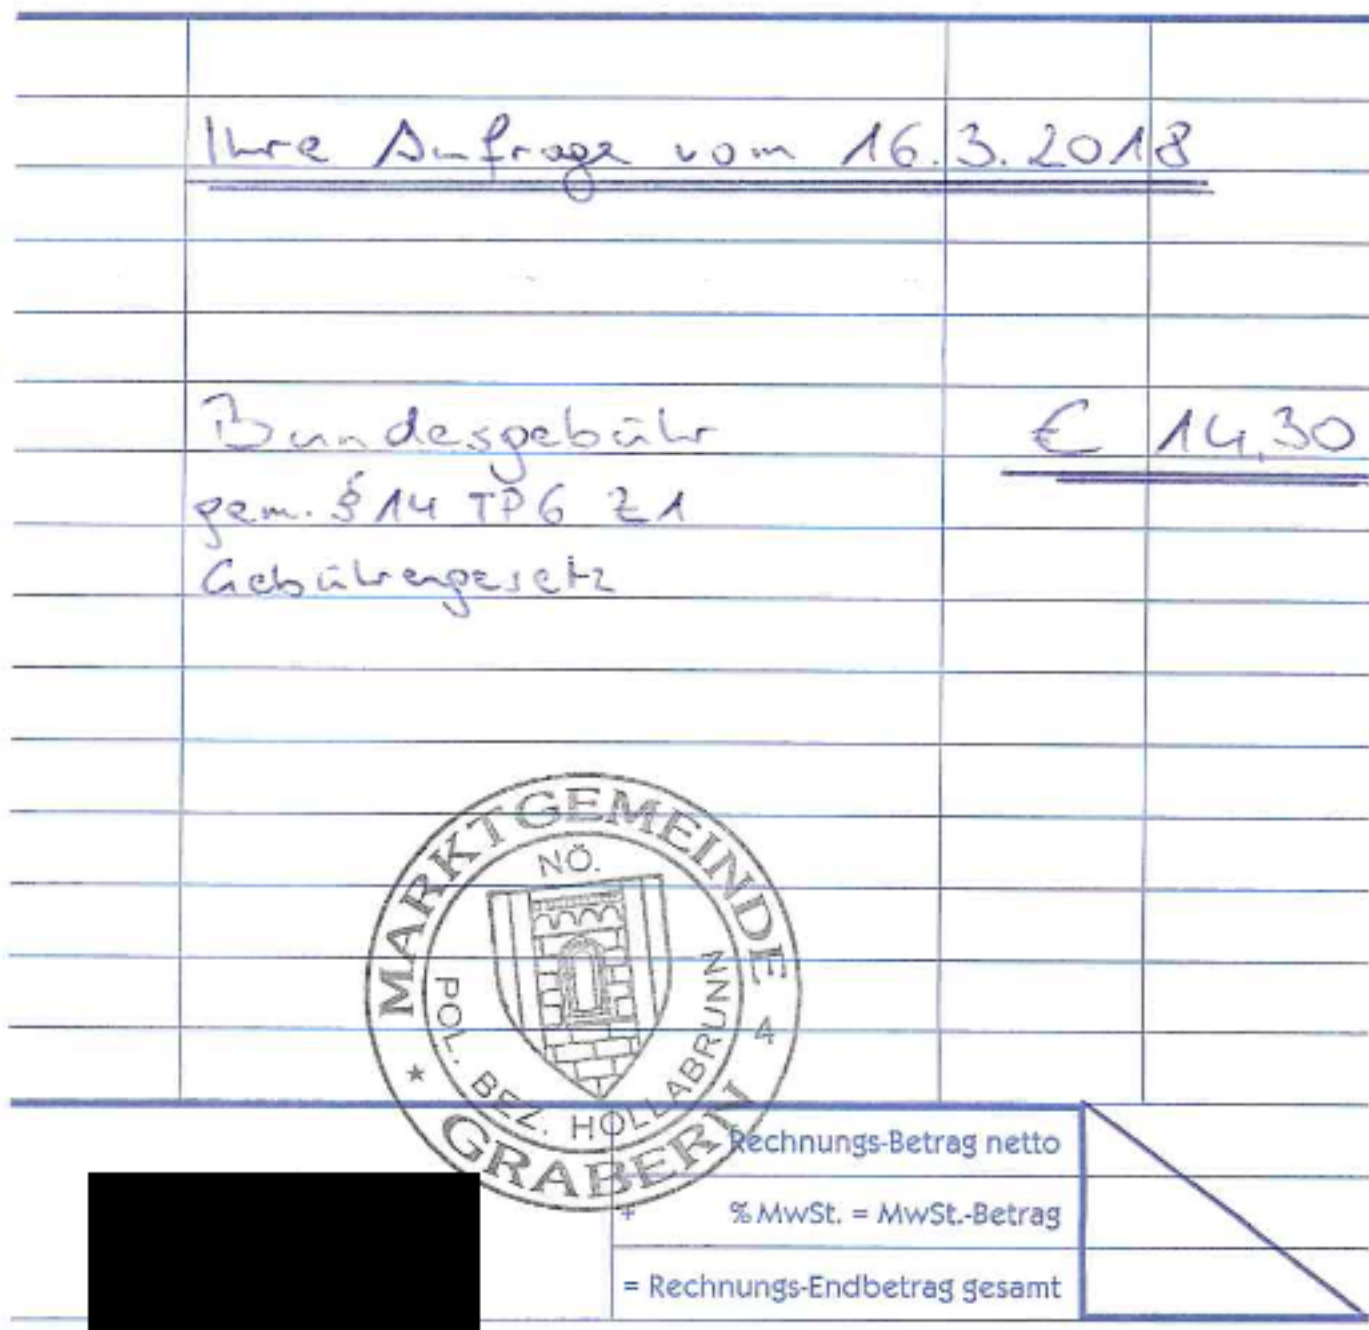 Ihre Anfrage vom 16.3.2018
Bundesgebühr € 14,30
gem. § 14 TP6 Z1
Gebührengesetz
MARKTGEMEINDE 4
NÖ.
POL. BEZ. HOLLABRUNN
* GRABERN
Rechnungs-Betrag netto
+ % MwSt. = MwSt.-Betrag
= Rechnungs-Endbetrag gesamt